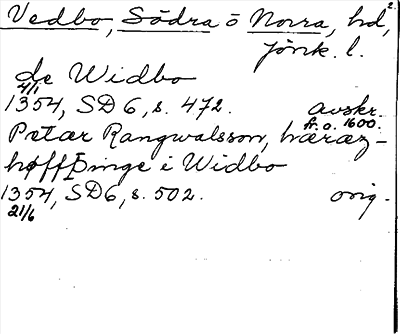 Vedbo, Södra o Norra, hd, 2.
Jönk. l.
de Widbo
4/1
1354, SD 6, s. 472. avskr.
fr. o. 1600.
Pætær Rangwalsson, hæræz-
høffþinge i Widbo
1354, SD 6, s. 502. orig.
21/6